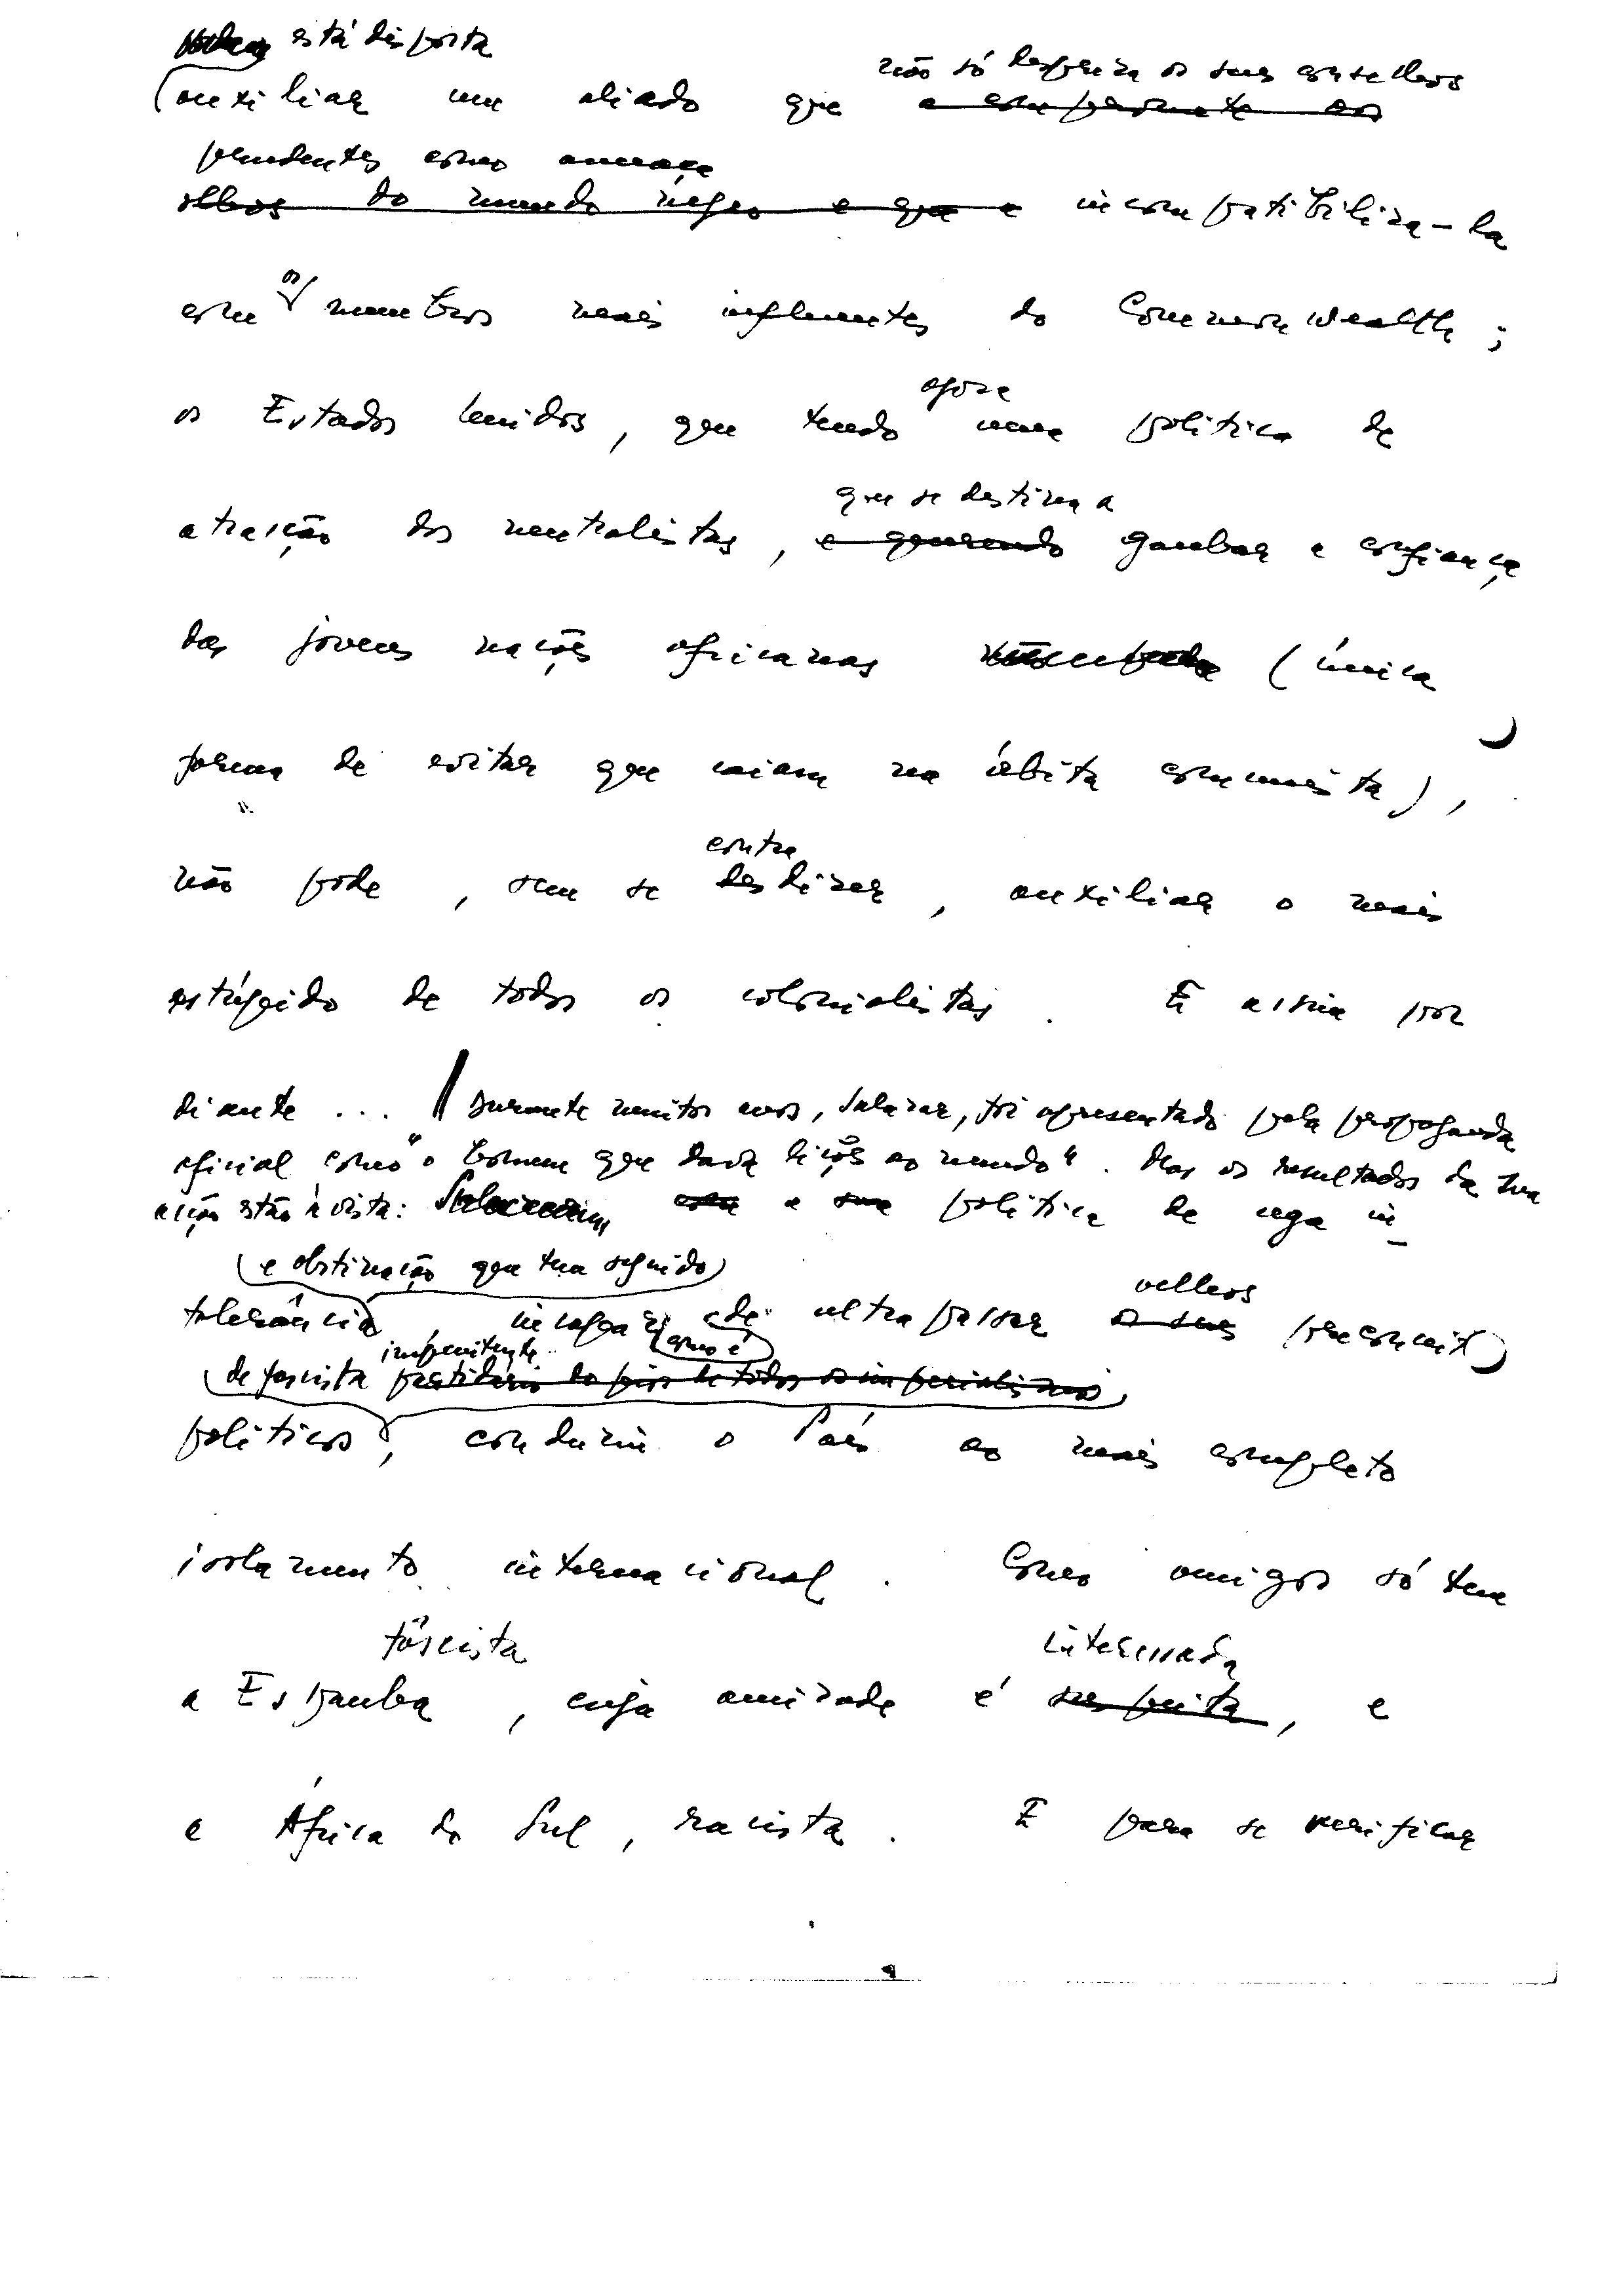 está disposta
não só despreza os seus conselhos
auxiliar um aliado que a comprometa aos
prudentes como ameaça
olhos do mundo negro e que a incompatibiliza-la
com os membros mais influentes do Commonwealth ;
agora
os Estados Unidos, que tendo uma política de
que se destina a
atracção dos neutralistas, e querendo ganhar a confiança
das jovens nações africanas (única
forma de evitar que caiam na órbita comunista),
contra
não pode, sem se desdizer, auxiliar o mais
estúpido de todos os colonialistas. E assim por
diante ... Durante muitos anos, Salazar, foi apresentado pela propaganda
oficial como "o homem que dava lições ao mundo". Mas os resultados da sua
acção estão à vista: com a sua política de cega in-
e obstinação que tem seguido
velhos
tolerância, incapaz de ultrapassar os seus preconceitos
impenitente como é
de fascista partidário do pior de todos os imperialismos
políticos, conduziu o País ao mais completo
isolamento internacional. Como amigos só tem
fascista
interessada
a Espanha, cuja amizade é suspeita, e
a África do Sul, racista. E para se verificar